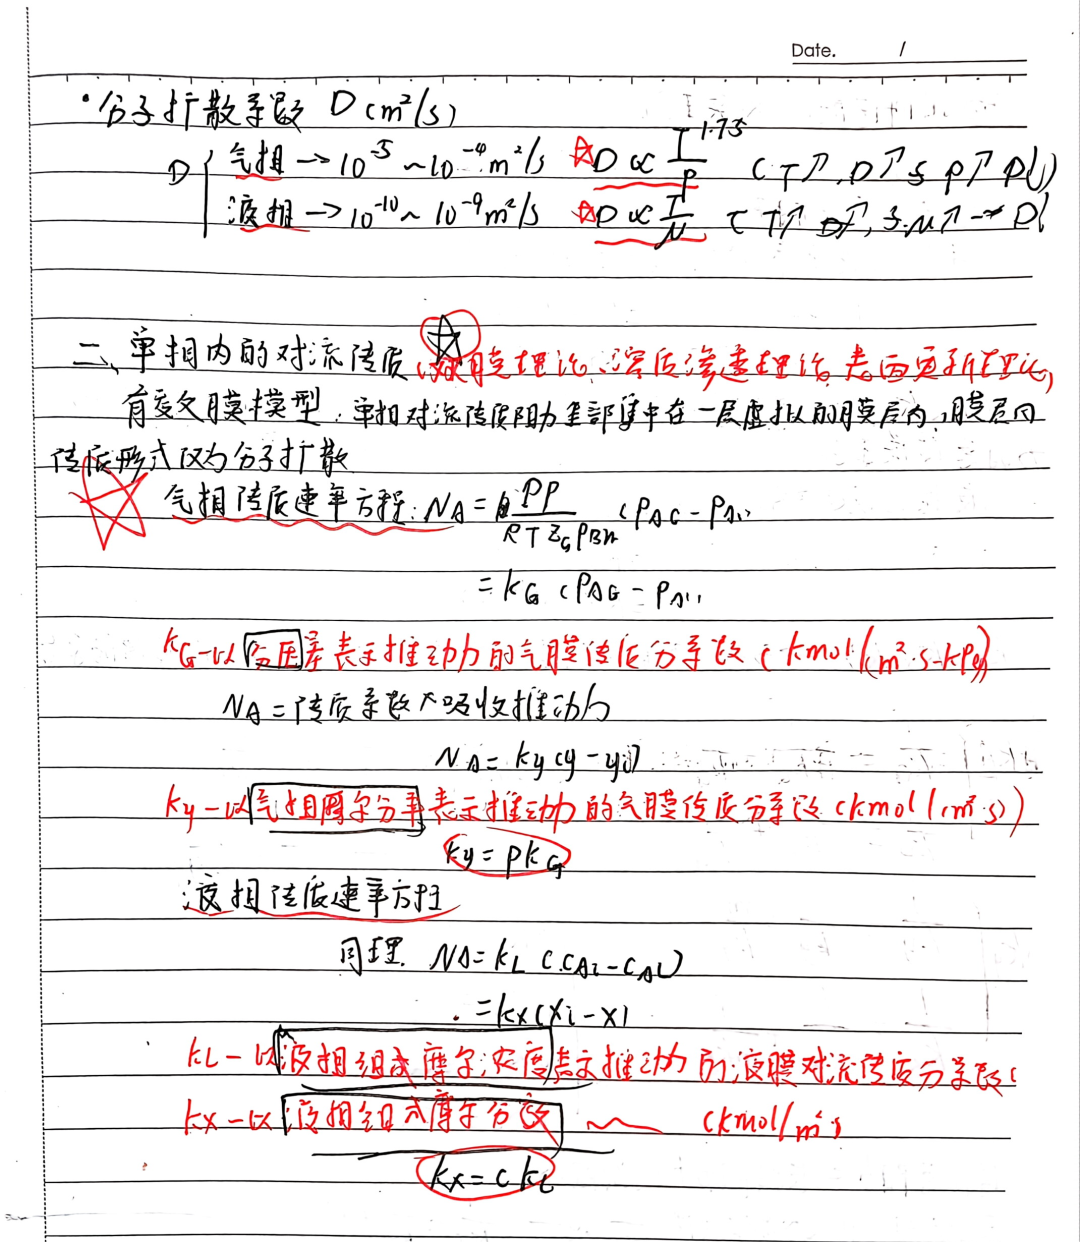 Date. /
·分子扩散系数 D (m²/s)
D { 气相 → 10⁻⁵ ~ 10⁻⁴ m²/s ☆D ∝ T^1.75/P (T↑,D↑; P↑ D↓)
液相 → 10⁻¹⁰ ~ 10⁻⁹ m²/s ☆D ∝ T/μ (T↑ D↑, μ↑ → D↓
二、单相内的对流传质 ☆(双膜理论、溶质渗透理论、表面更新理论)
有效膜模型:单相对流传质阻力全部集中在一层虚拟的膜层内,膜层内
传质形式仅为分子扩散
☆ 气相传质速率方程:NA = DP/(RTZG PBm) (PAG - PAi)
= kG (PAG - PAi)
kG-以分压差表示推动力的气膜传质分系数 (kmol/(m²·s·kPa)
NA = 传质系数×吸收推动力
NA = ky(y - yi)
ky-以气相摩尔分率表示推动力的气膜传质分系数 (kmol/(m²·s))
ky = PkG
液相传质速率方程
同理. NA = kL (CAi - CAL)
= kx(xi - x)
kL-以液相组成摩尔浓度表示推动力的液膜对流传质分系数(
kx-以液相组成摩尔分数 ~ (kmol/m²s
kx = CkL